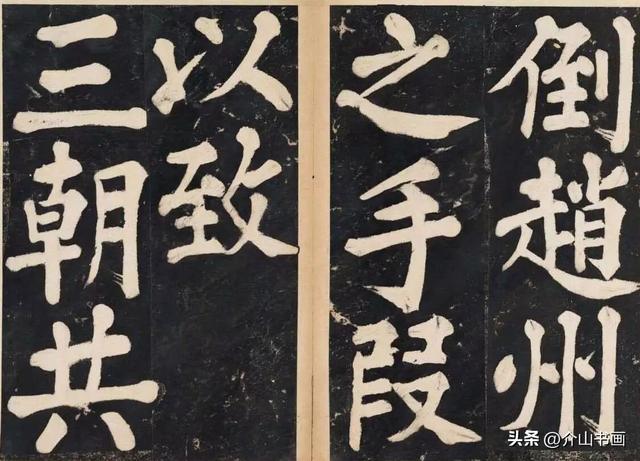 倒趙州
之手段
以致
三朝共
头条 @介山书画